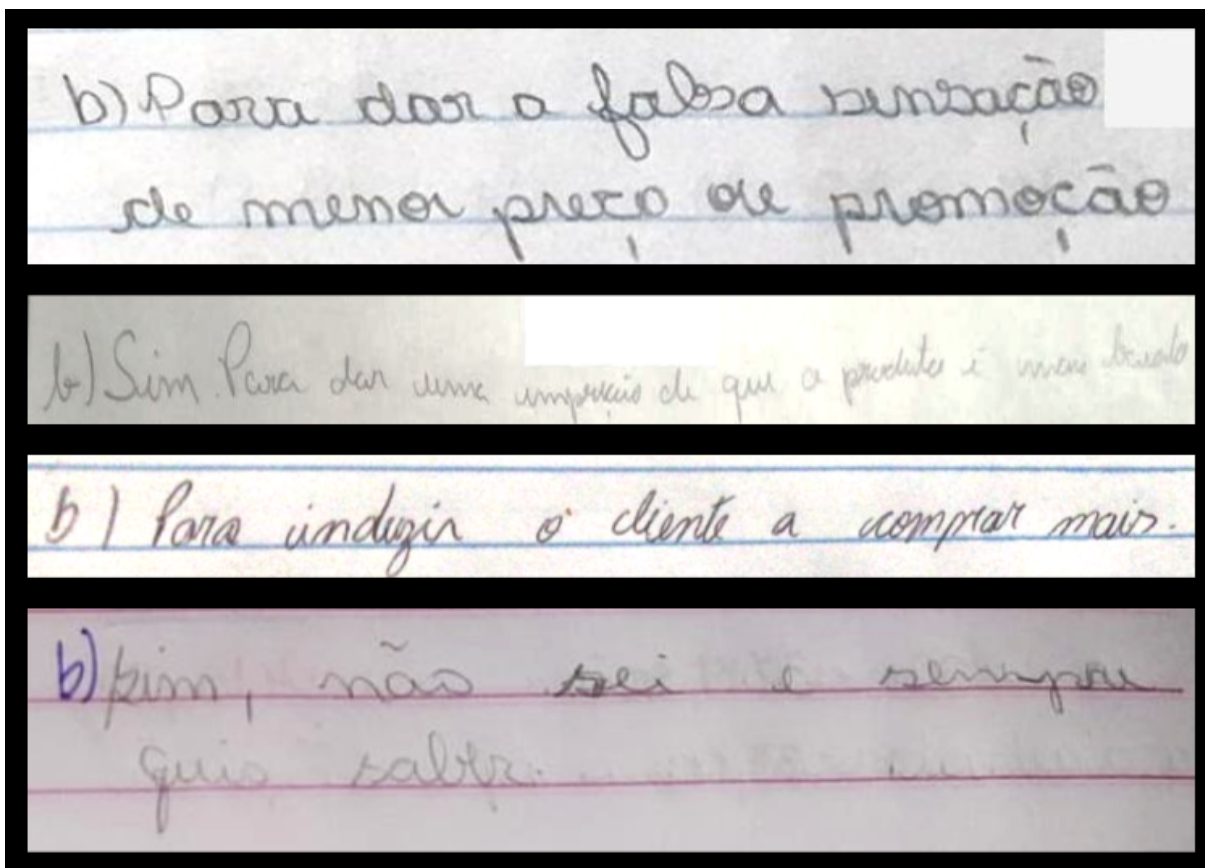 b) Para dar a falsa sensação
de menor preço ou promoção
b) Sim. Para dar uma impressão de que o produto é mais barato
b) Para induzir o cliente a comprar mais.
b) sim, não sei e sempre
quis saber.